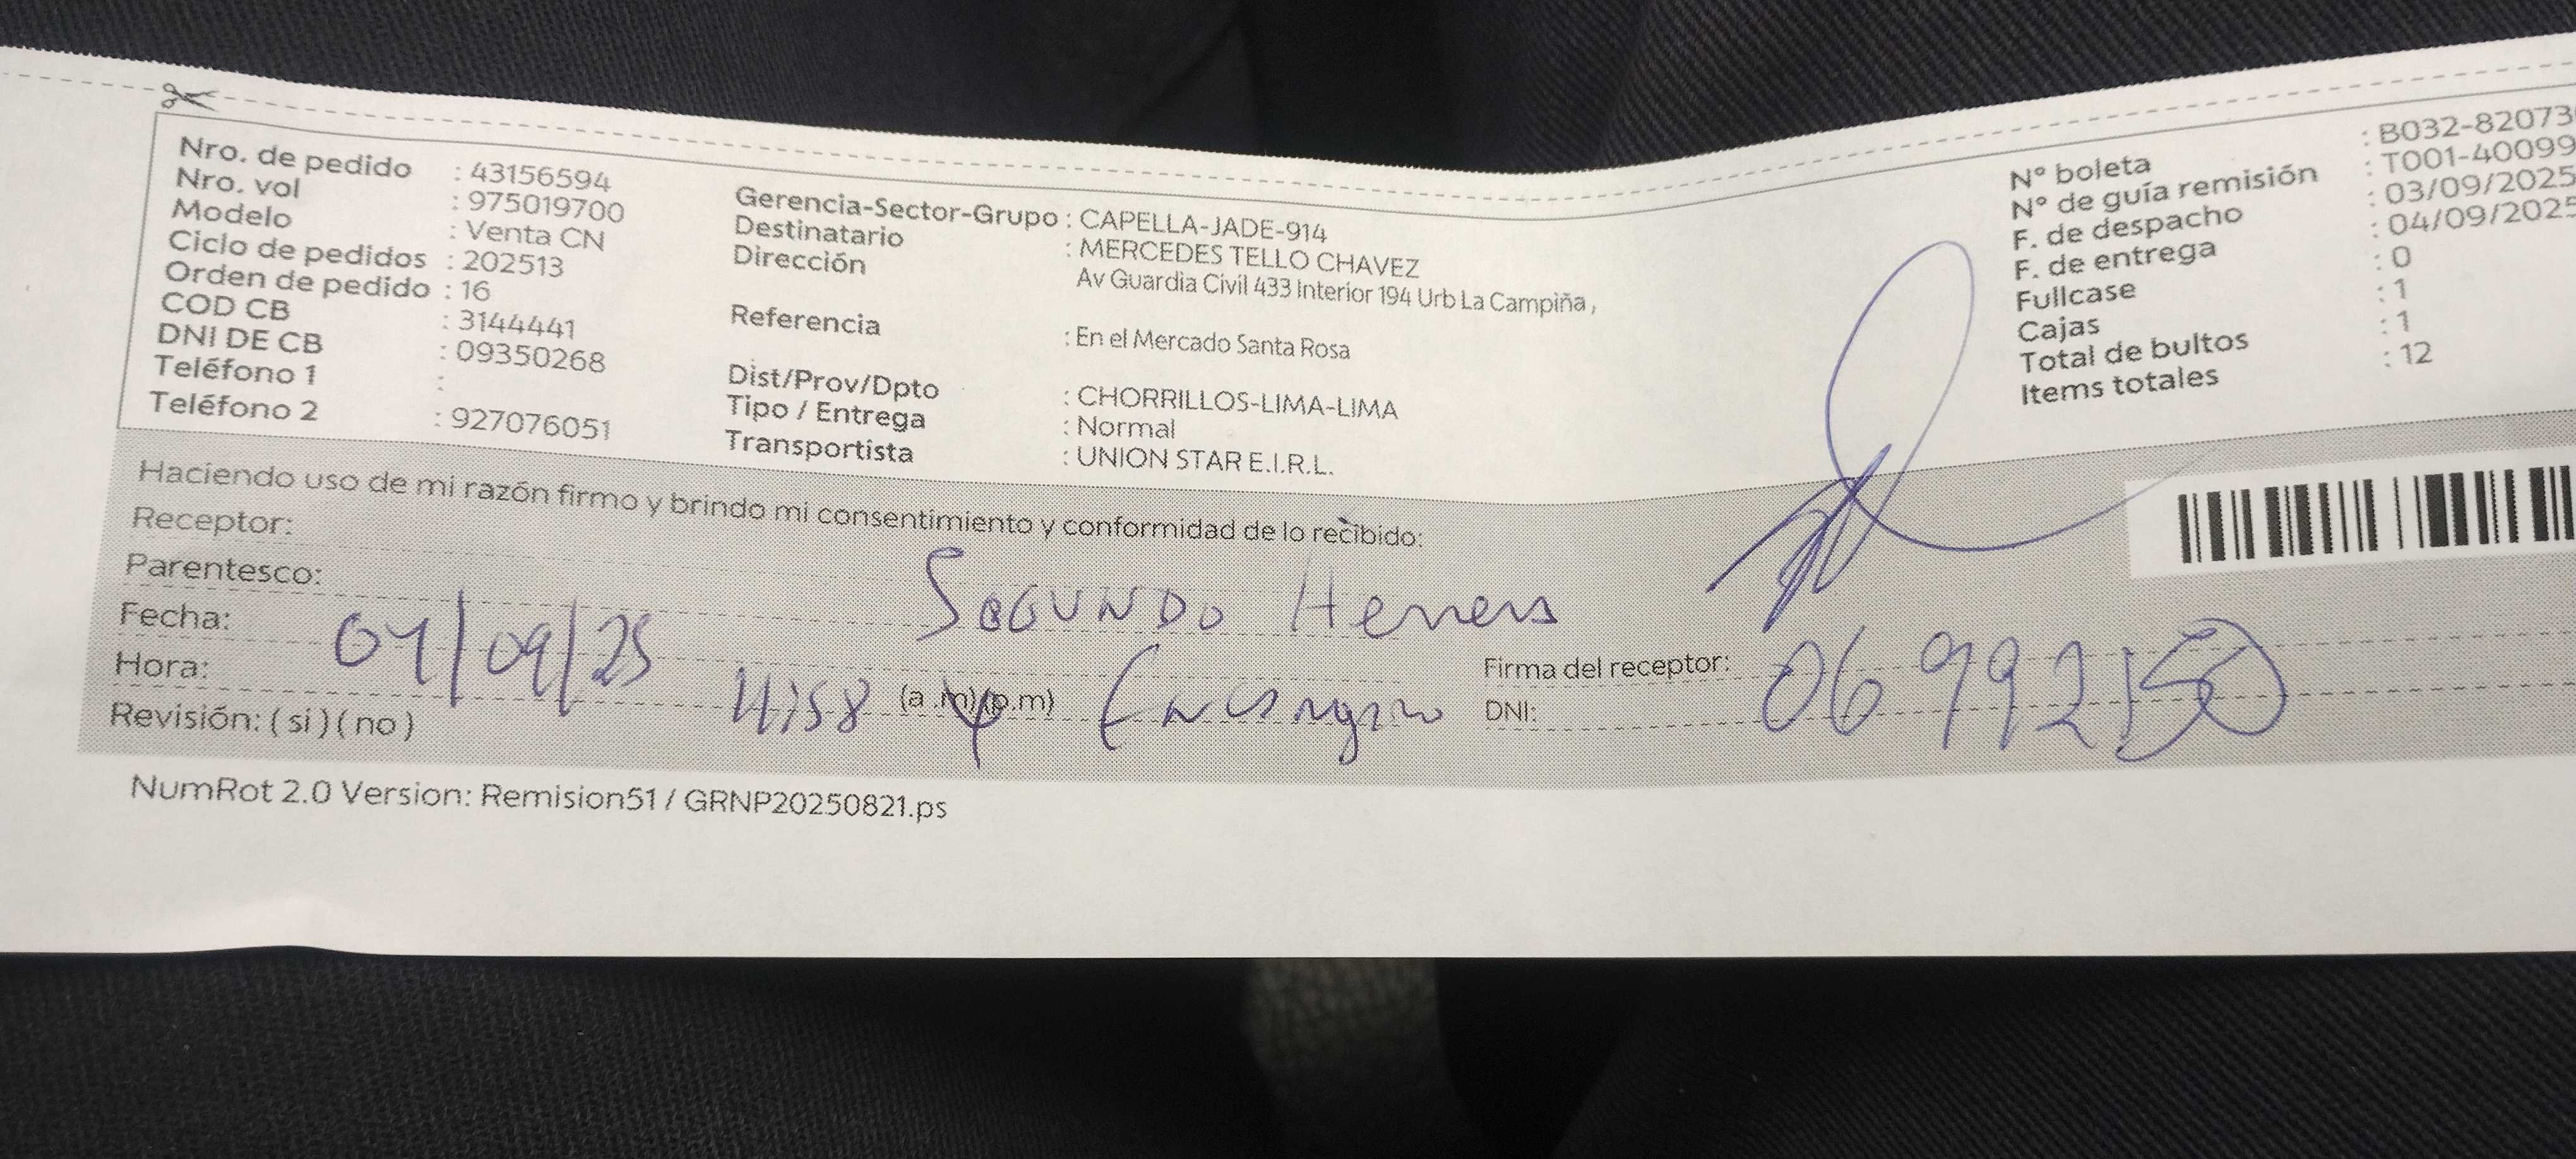 Nro. de pedido : 43156594
Nro. vol : 975019700
Modelo : Venta CN
Ciclo de pedidos : 202513
Orden de pedido : 16
COD CB : 3144441
DNI DE CB : 09350268
Teléfono 1 :
Teléfono 2 : 927076051
Gerencia-Sector-Grupo : CAPELLA-JADE-914
Destinatario : MERCEDES TELLO CHAVEZ
Dirección Av Guardia Civil 433 Interior 194 Urb La Campiña,
Referencia : En el Mercado Santa Rosa
Dist/Prov/Dpto : CHORRILLOS-LIMA-LIMA
Tipo / Entrega : Normal
Transportista : UNION STAR E.I.R.L.
N° boleta : B032-82073
N° de guía remisión : T001-40099
F. de despacho : 03/09/2025
F. de entrega : 04/09/2025
Fullcase : 0
Cajas : 1
Total de bultos : 1
Items totales : 12
Haciendo uso de mi razón firmo y brindo mi consentimiento y conformidad de lo recibido:
Receptor:
Parentesco: SEGUNDO Herrera
Fecha: 04/09/25
Hora: (a .m)(p.m)
Revisión: ( si ) ( no )
Firma del receptor:
DNI:
NumRot 2.0 Version: Remision51 / GRNP20250821.ps